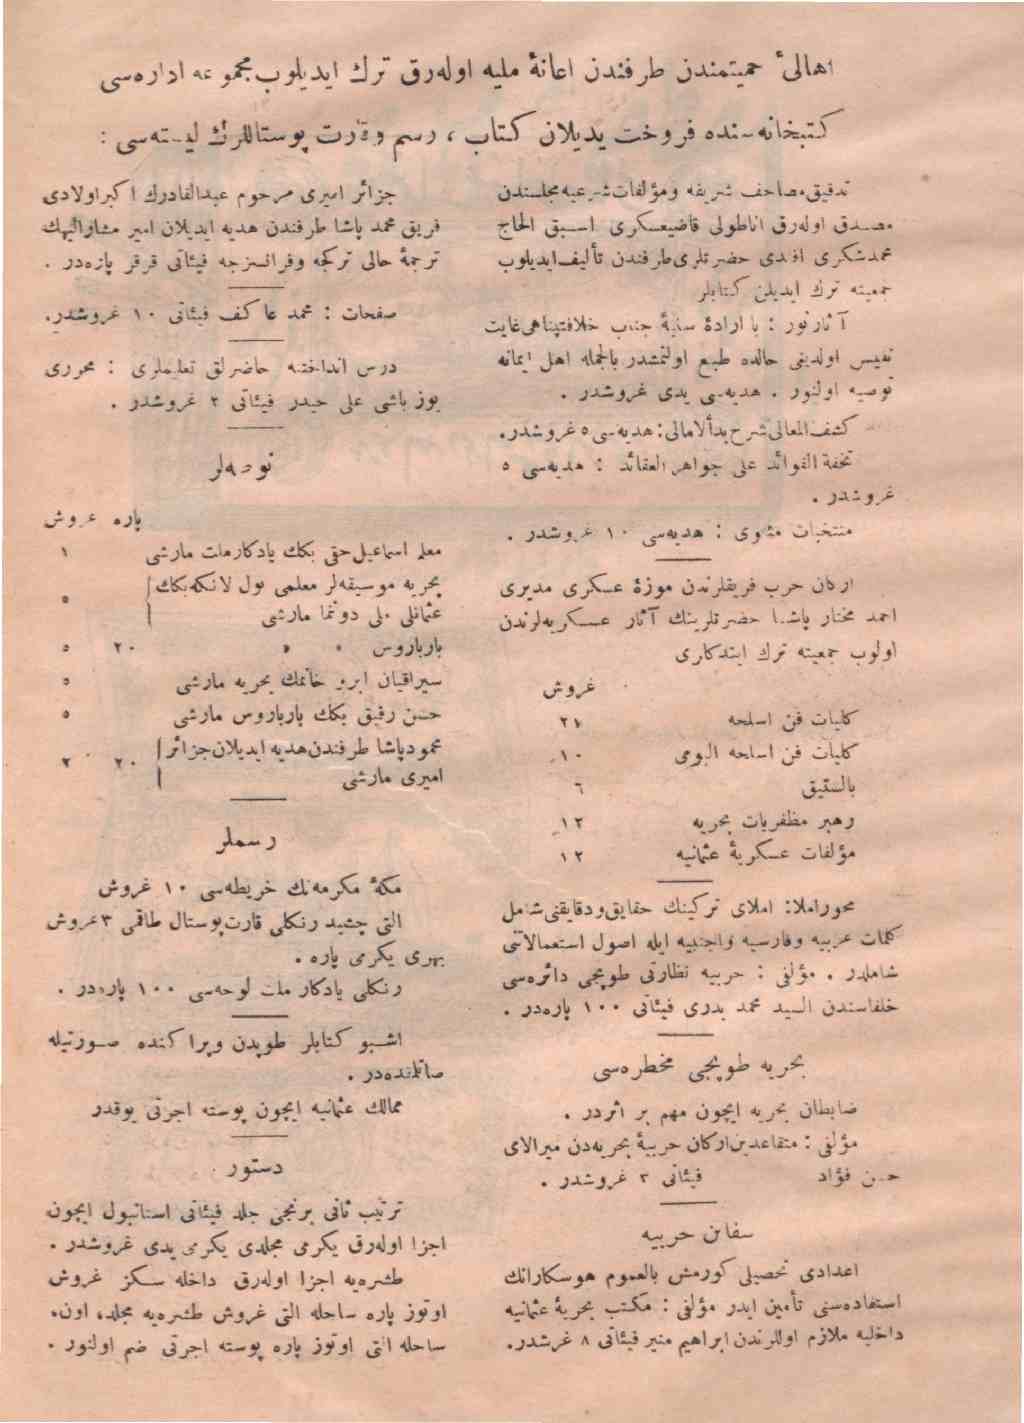 اهالئ حميتمندن طرفندن اعانۀ مليه اوله‌رق ترك ايديلوب مجموعه اداره‌سى
كتبخانه‌سنده فروخت يديلان كتاب ، رسم وقارت پوستاللرك ليسته‌سى :
تدقيق مصاحف شريفه ومؤلفات شرعيه مجلسندن
مصدق اوله‌رق اناطولى قاضيعسكرى اسبق الحاج
محمد شكرى افندى حضرتلرى طرفندن تأليف ايديلوب
جمعيته ترك ايديلن كتابلر
آثار نور : با ارادۀ سنيۀ جناب خلافتپناهى غايت
نفيس اولديغى حالده طبع اولنمشدر بالجمله اهل ايمانه
توصيه اولنور . هديه‌سى يدى غروشدر .
كشف المعالى شرح بدأ الامالى : هديه‌سى ٥ غروشدر.
تحفة الفوائد على جواهر العقائد : هديه‌سى ٥
غروشدر .
منتخبات مثنوى : هديه‌سى ١٠ غروشدر .
اركان حرب فريقلرندن موزۀ عسكرى مديرى
احمد مختار پاشا حضرتلرينك آثار عسكريه‌لرندن
اولوب جمعيته ترك ايتدكلرى
غروش
كليات فن اسلحه ٢١
كليات فن اسلحه البومى ١٠
بالستيق ٦
رهبر مظفريات بحريه ١٢
مؤلفات عسكريۀ عثمانيه ١٢
محور املا : املاى تركينك حقايق ودقايقنى شامل
كلمات عربيه وفارسيه واجنبيه ايله اصول استعمالاتنى
شاملدر . مؤلفى : حربيه نظارتى طوپجى دائره‌سى
خلفاسندن السيد محمد بدرى فيئاتى ١٠٠ پاره‌در .
بحريه طوپجى مخطره‌سى
ضابطان بحريه ايچون مهم بر اثردر .
مؤلفى : متقاعدين اركان حربيۀ بحريه‌دن ميرالاى
حسن فؤاد فيئاتى ٣ غروشدر .
سفائن حربيه
اعدادى تحصيلى كورمش بالعموم هوسكارانك
استفاده‌سنى تأمين ايدر مؤلفى : مكتب بحريۀ عثمانيه
داخليه ملازم اوللرندن ابراهيم منير فيئاتى ٨ غرشدر.
جزائر اميرى مرحوم عبدالقادرك اكبر اولادى
فريق محمد پاشا طرفندن هديه ايديلان امير مشاراليهك
ترجمۀ حالى تركجه وفرانسزجه فيئاتى قرقر پاره‌در .
صفحات : محمد عاكف فيئاتى ١٠ غروشدر.
درس انداختنه حاضرلق تعليملرى : محررى
يوزباشى على حيدر فيئاتى ٢ غروشدر .
نوطه‌لر
پاره غروش
معلم اسماعيل حقى بكك يادكار ملت مارشى ١
بحريه موسيقه‌لر معلمى پول لانكه بكك
عثمانلى ملى دوننما مارشى ٥
بارباروس » » ٢٠ ٥
سيراقيان ابرو خانمك بحريه مارشى ٥
حسن رفيق بكك بارباروس مارشى ٥
محمود پاشا طرفندن هديه ايديلان جزائر
اميرى مارشى ٢٠ ٢
رسملر
مكۀ مكرمه‌نك خريطه‌سى ١٠ غروش
التى چشيد رنكلى قارت پوستال طاقمى ٣ غروش
بهرى يكرمى پاره .
رنكلى يادكار ملت لوحه‌سى ١٠٠ پاره‌در .
اشبو كتابلر طوپدن وپراكنده صورتيله
صاتلمقده‌در .
ممالك عثمانيه ايچون پوسته اجرتى يوقدر
دستور
ترتيب ثانى برنجى جلد فيئاتى استانبول ايچون
اجزا اوله‌رق يكرمى مجلدى يكرمى يدى غروشدر .
طشره‌يه اجزا اوله‌رق داخله سكز غروش
اوتوز پاره ساحله التى غروش طشره‌يه مجلد، اون،
ساحله التى اوتوز پاره پوسته اجرتى ضم اولنور .